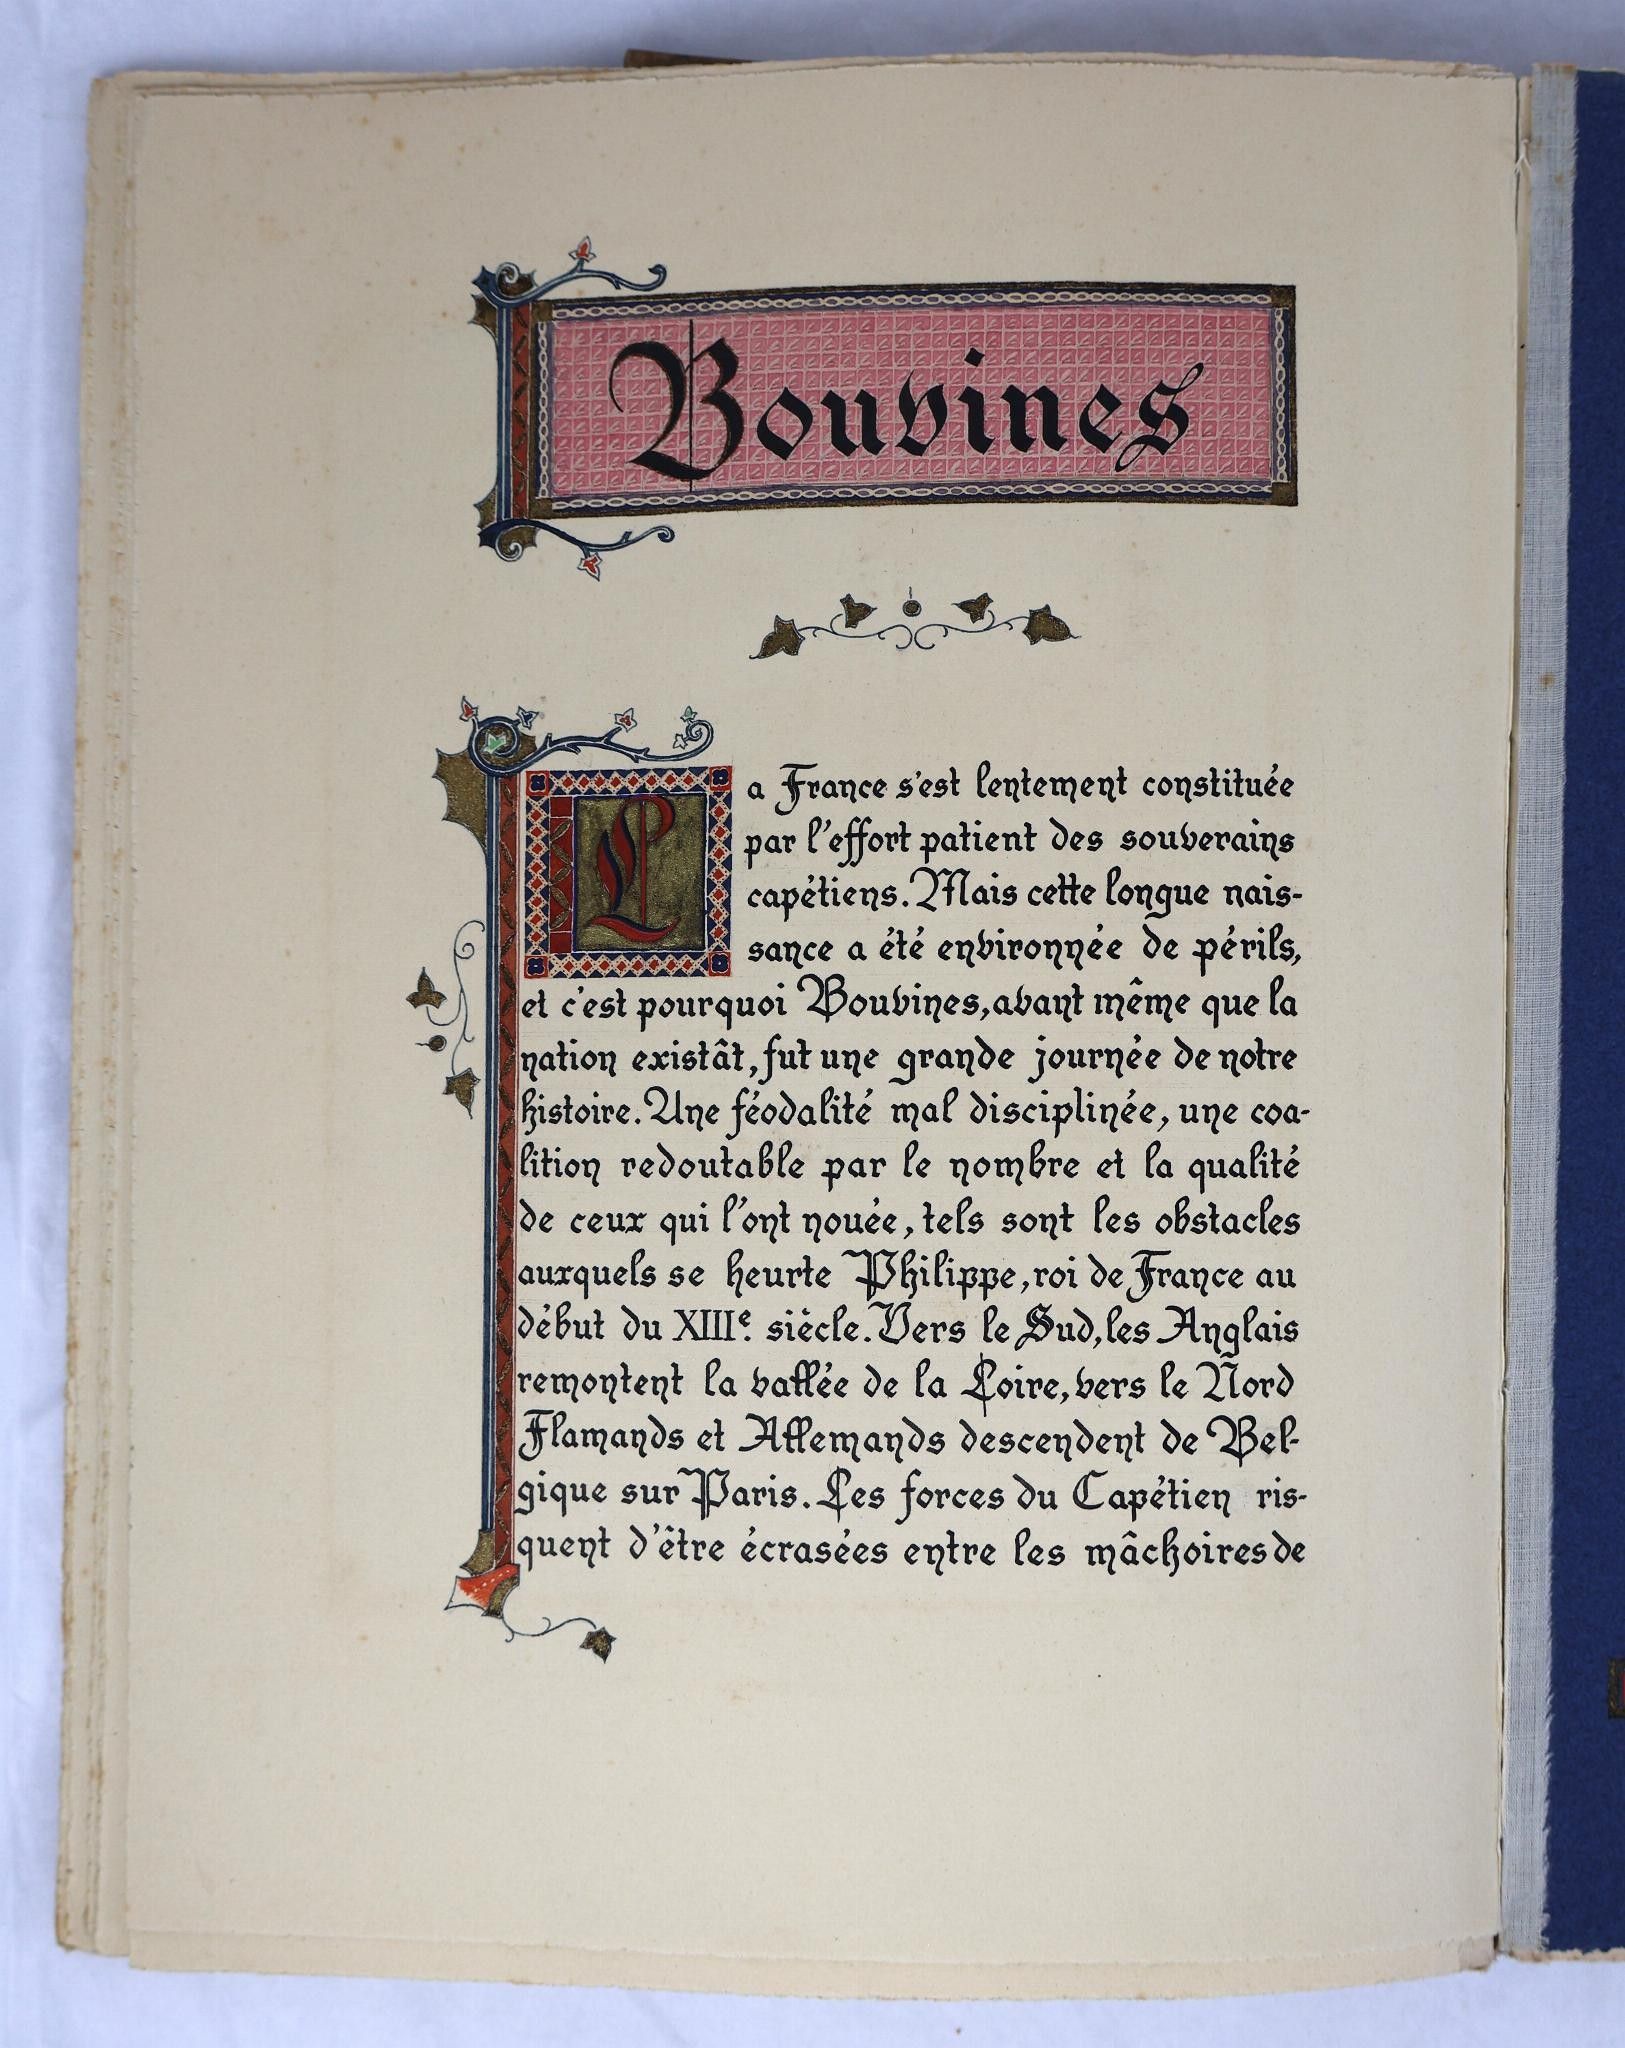 Bouvines
La France s'est lentement constituée
par l'effort patient des souverains
capétiens. Mais cette longue nais-
sance a été environnée de périls,
et c'est pourquoi Bouvines, avant même que la
nation existât, fut une grande journée de notre
histoire. Une féodalité mal disciplinée, une coa-
lition redoutable par le nombre et la qualité
de ceux qui l'ont nouée, tels sont les obstacles
auxquels se heurte Philippe, roi de France au
début du XIIIe. siècle. Vers le Sud, les Anglais
remontent la vallée de la Loire, vers le Nord
Flamands et Allemands descendent de Bel-
gique sur Paris. Les forces du Capétien ris-
quent d'être écrasées entre les mâchoires de